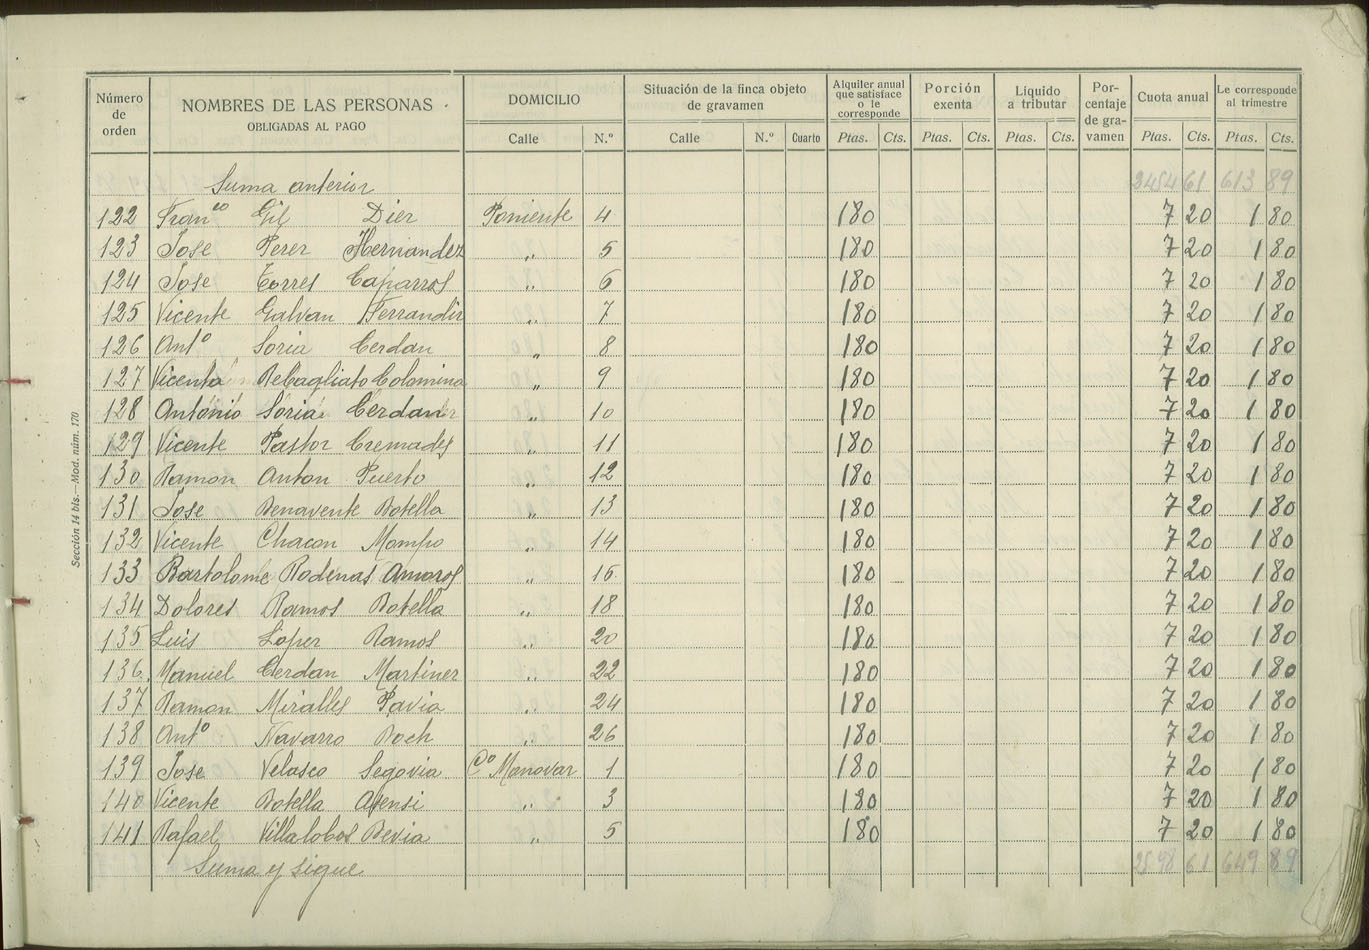 Número de orden | NOMBRES DE LAS PERSONAS OBLIGADAS AL PAGO | DOMICILIO | Situación de la finca objeto de gravamen | Alquiler anual que satisface o le corresponde | Porción exenta | Líquido a tributar | Por-centaje de gra-vamen | Cuota anual | Le corresponde al trimestre
Calle | N.º | Calle | N.º | Cuarto | Ptas. | Cts. | Ptas. | Cts. | Ptas. | Cts. | Ptas. | Cts. | Ptas. | Cts.
Suma anterior 2454 61 613 89
122 Franco Gil Dier Poniente 4 180 7 20 1 80
123 Jose Perer Hernandez " 5 180 7 20 1 80
124 Jose Torres Caparros " 6 180 7 20 1 80
125 Vicente Galvan Ferrandir " 7 180 7 20 1 80
126 Antº Soria Cerdan " 8 180 7 20 1 80
127 Vicenta Rebagliato Colomina " 9 180 7 20 1 80
128 Antonio Soria Cerdan " 10 180 7 20 1 80
129 Vicente Pastor Cremades " 11 180 7 20 1 80
130 Ramon Anton Puerto " 12 180 7 20 1 80
131 Jose Benavente Botella " 13 180 7 20 1 80
132 Vicente Chacon Mompo " 14 180 7 20 1 80
133 Bartolome Rodenas Amoros " 16 180 7 20 1 80
134 Dolores Ramos Botella " 18 180 7 20 1 80
135 Luis Loper Ramos " 20 180 7 20 1 80
136 Manuel Cerdan Martiner " 22 180 7 20 1 80
137 Ramon Miralles Pavia " 24 180 7 20 1 80
138 Antº Navarro Poch " 26 180 7 20 1 80
139 Jose Velasco Segovia Cº Monovar 1 180 7 20 1 80
140 Vicente Botella Asensi " 3 180 7 20 1 80
141 Rafael Villalobos Bevia " 5 180 7 20 1 80
Suma y sigue 2598 61 649 89
Sección 14 bis.—Mod. núm. 170